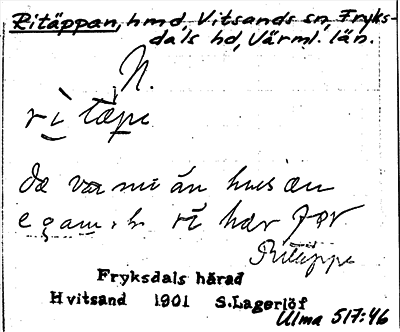 Ritäppan, hmd, Vitsands sn, Fryks-
dals hd, Värml. län.
N.
rì tæpe
dæ va ni án hus æn
e gam rí hær før
Ritäppe
Fryksdals härad
Hvitsand 1901 S.Lagerlöf
Ulma 517:46